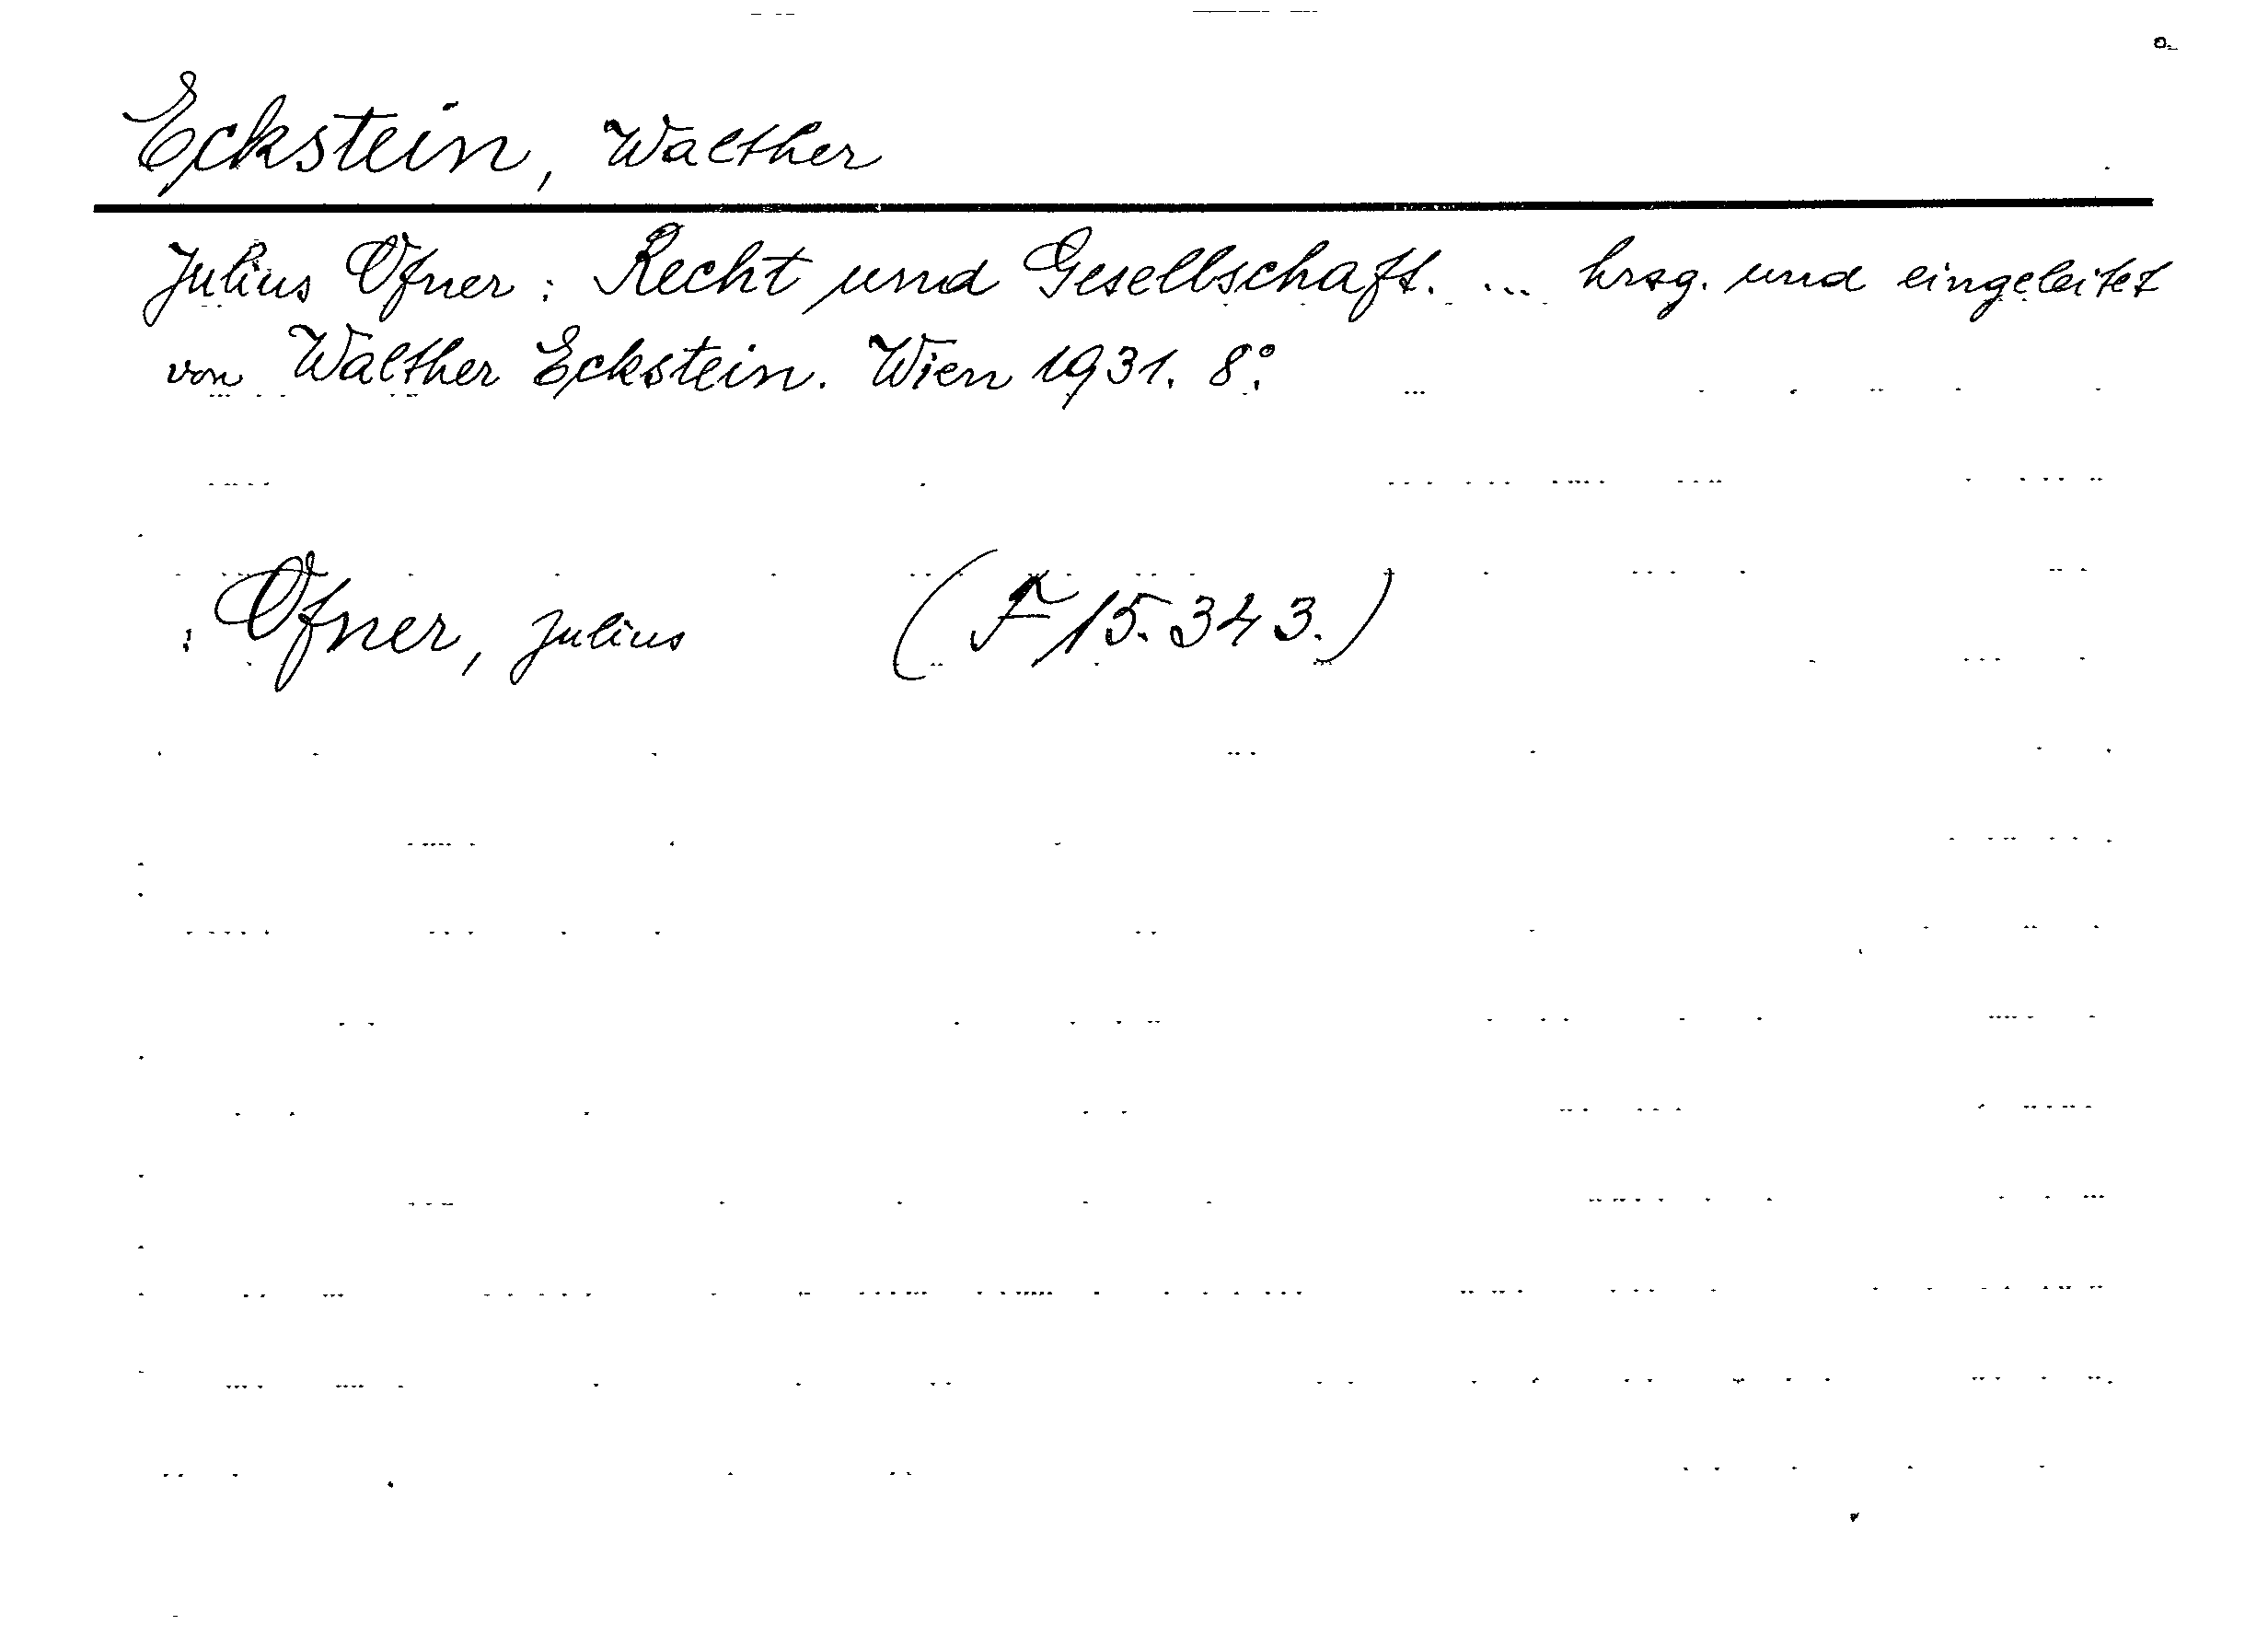 Eckstein, Walther
Julius Ofner: Recht und Gesellschaft. ... hrsg. und eingeleitet
von Walther Eckstein. Wien 1931. 8°.
: Ofner, Julius (F 15.343.)